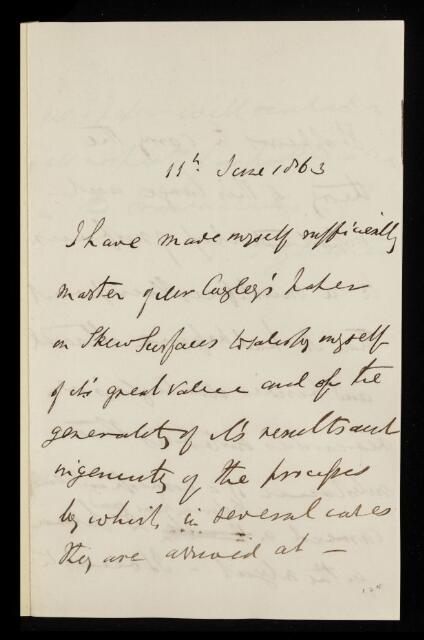 11th June 1863
I have made myself sufficiently
master of Mr Cayley's Paper
on Skew Surfaces to satisfy myself
of it's great value and of the
generality of it's results and
ingenuity of the processes
by which in several cases
they are arrived at —